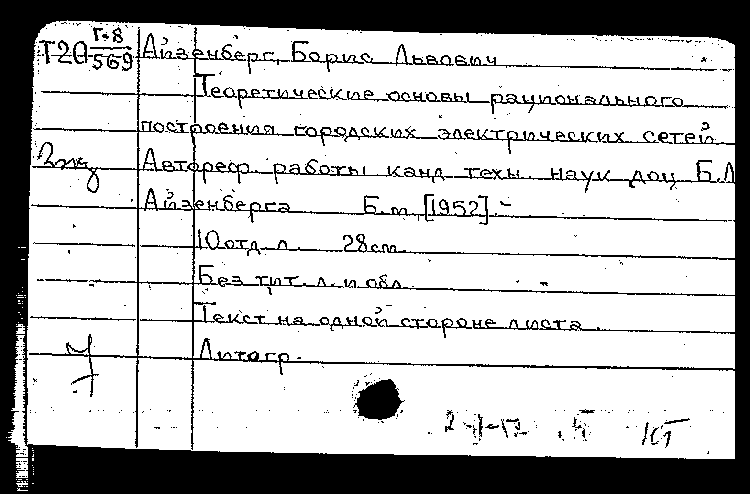 Г-8
Т20 569 Айзенберг, Борис Львович
Теоретические основы рационального
построения городских электрических сетей
2 экз Автореф. работы канд техн. наук доц Б.Л
Айзенберга Б.м, [1952]. -
10 отд. л. 28 см
Без тит. л. и обл.
Текст на одной стороне листа.
Литогр.